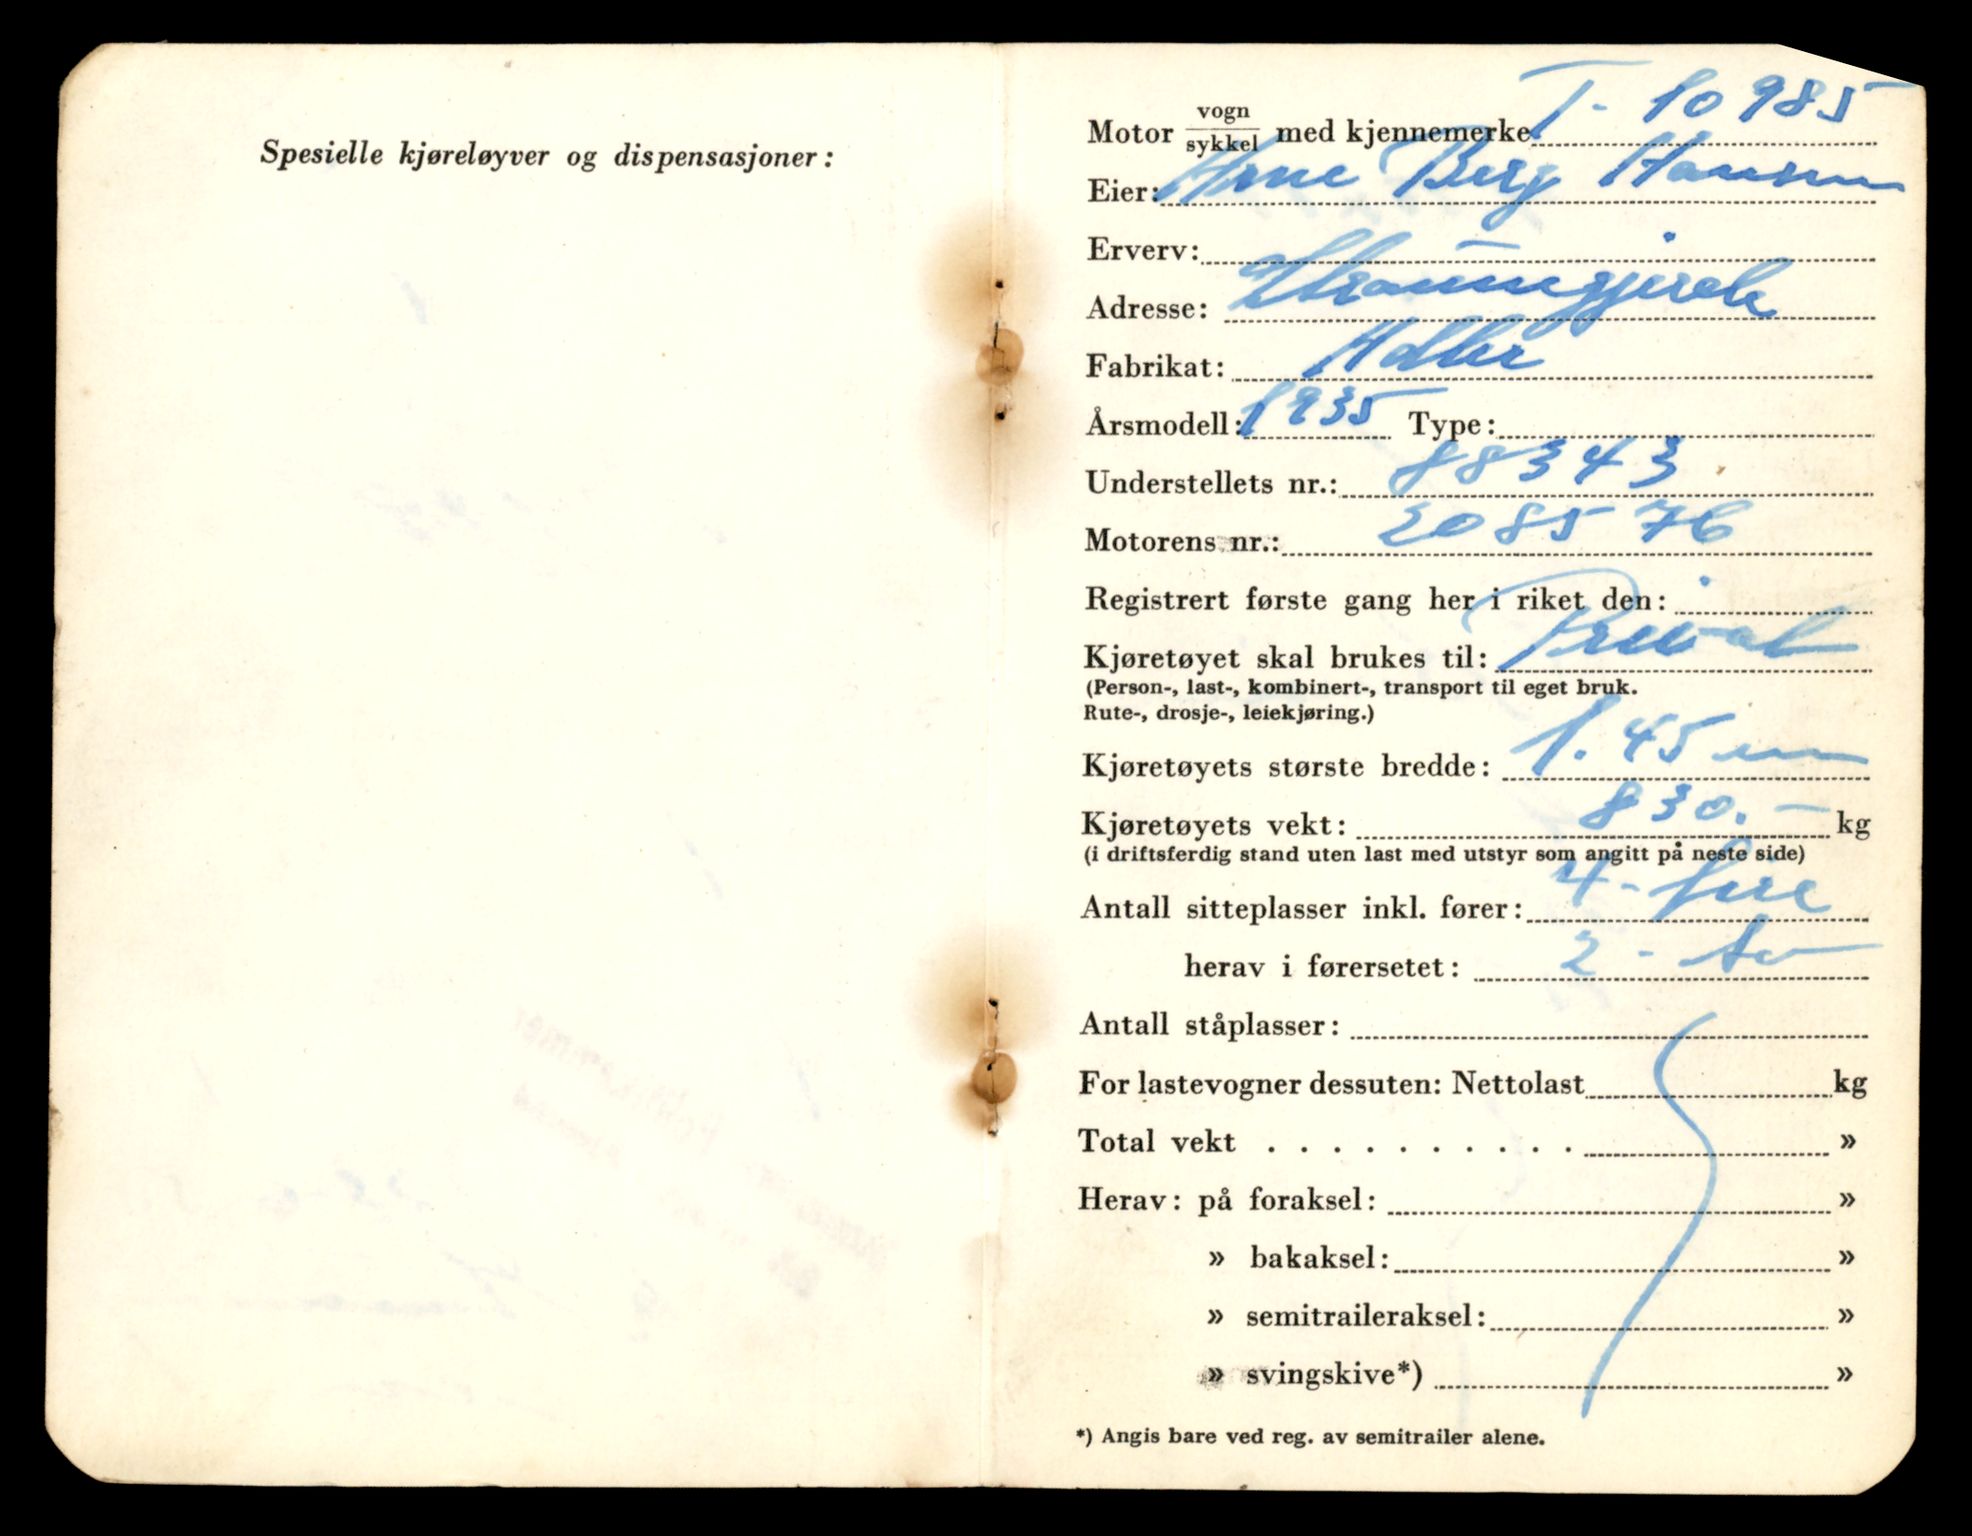 Spesielle kjøreløyver og dispensasjoner:
Motor vogn/sykkel med kjennemerke T- 10985
Eier: Arne Berg Hansen
Erverv:
Adresse:
Fabrikat: Adler
Årsmodell: 1935 Type:
Understellets nr.: 88343
Motorens nr.: 208576
Registrert første gang her i riket den:
Kjøretøyet skal brukes til: Privat
(Person-, last-, kombinert-, transport til eget bruk.
Rute-, drosje-, leiekjøring.)
Kjøretøyets største bredde: 1.45 m
Kjøretøyets vekt: 830.- kg
(i driftsferdig stand uten last med utstyr som angitt på neste side)
Antall sitteplasser inkl. fører: 4- fire
herav i førersetet: 2 - to
Antall ståplasser:
For lastevogner dessuten: Nettolast kg
Total vekt . . . . . . . . . . »
Herav: på foraksel: »
» bakaksel: »
» semitraileraksel: »
» svingskive*) »
*) Angis bare ved reg. av semitrailer alene.